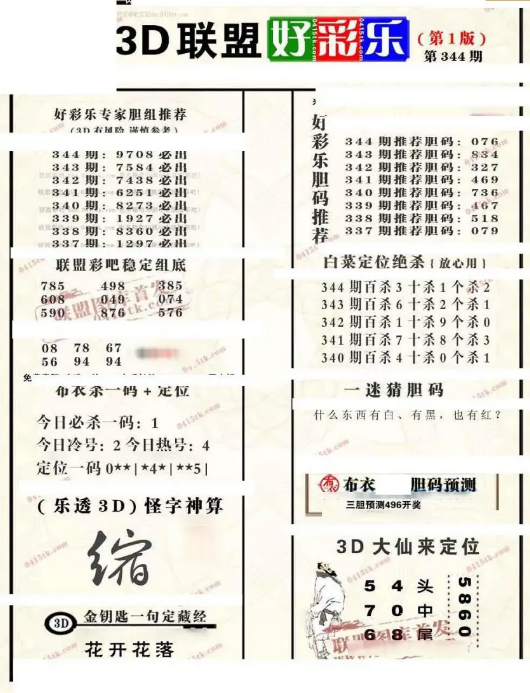 3D联盟好彩乐
(第1版)
第344期
好彩乐专家胆组推荐
(3D有风险 谨慎参考)
344期: 9708 必出
343期: 7584 必出
342期: 7438 必出
341期: 6251 必出
340期: 8273 必出
339期: 1927 必出
338期: 8360 必出
337期: 1297 必出
联盟彩吧稳定组底
785 498 385
608 049 074
590 876 576
08 78 67
56 94 94
布衣杀一码+定位
今日必杀一码: 1
今日冷号: 2 今日热号: 4
定位一码 0**|*4*|**5|
(乐透3D)怪字神算
缩
3D 金钥匙一句定藏经
花开花落
好彩乐胆码推荐
344期推荐胆码: 076
343期推荐胆码: 834
342期推荐胆码: 327
341期推荐胆码: 469
340期推荐胆码: 736
339期推荐胆码: 467
338期推荐胆码: 518
337期推荐胆码: 079
白菜定位绝杀{放心用}
344期百杀3十杀1个杀2
343期百杀6十杀2个杀1
342期百杀1十杀9个杀0
341期百杀7十杀8个杀3
340期百杀4十杀0个杀1
一迷猜胆码
什么东西有白、有黑,也有红?
布衣 胆码预测
三胆预测496开奖
3D大仙来定位
5 4 头
7 0 中
6 8 尾
5860